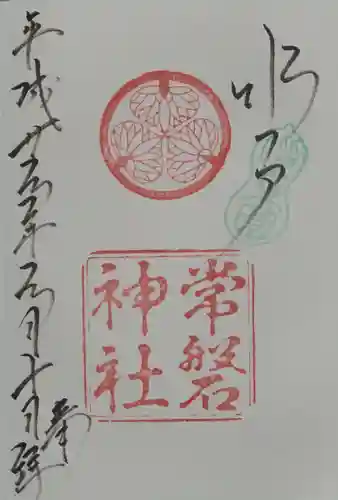 水戸
常磐
神社
平成廿五年五月十日
奉拝